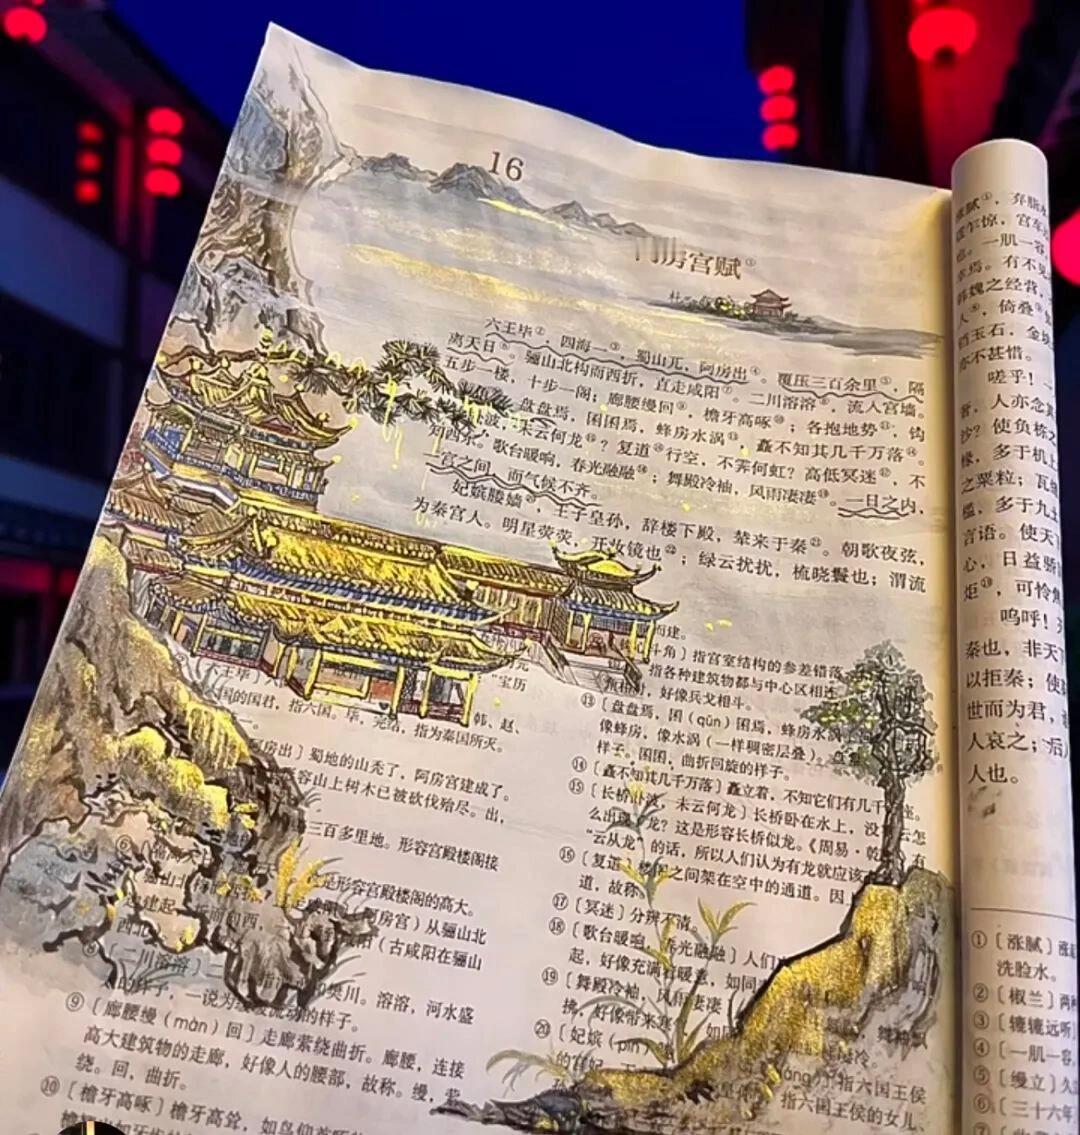 16
房宫赋①
六王毕②，四海一③，蜀山兀，阿房出④。覆压三百余里⑤，隔
离天日⑥。骊山北构而西折，直走咸阳⑦。二川溶溶⑧，流入宫墙。
五步一楼，十步一阁；廊腰缦回⑨，檐牙高啄⑩；各抱地势⑪，钩
盘盘焉，囷囷焉，蜂房水涡⑬，矗不知其几千万落⑭。
波，未云何龙⑮？复道⑯行空，不霁何虹？高低冥迷⑰，不
知西东。歌台暖响，春光融融⑱；舞殿冷袖，风雨凄凄⑲。一日之内，
一宫之间，而气候不齐。
妃嫔媵嫱⑳，王子皇孙，辞楼下殿，辇来于秦㉑。朝歌夜弦，
为秦宫人。明星荧荧，开妆镜也㉒；绿云扰扰，梳晓鬟也；渭流
〔六王毕〕
“宝历
国的国君，指六国。毕，完结，指为秦国所灭。
韩、赵、
房出〕蜀地的山秃了，阿房宫建成了。
容山上树木已被砍伐殆尽。出，
三百多里地。形容宫殿楼阁接
是形容宫殿楼阁的高大。
骊山北
阿房宫）从骊山北
建起，折而向西，
咸阳（古咸阳在骊山
西北
⑧〔二川溶溶〕二
樊川。溶溶，河水盛
的样子，一说为缓缓流动的样子。
⑨〔廊腰缦（màn）回〕走廊萦绕曲折。廊腰，连接
高大建筑物的走廊，好像人的腰部，故称。缦，萦
绕。回，曲折。
⑩〔檐牙高啄〕檐牙高耸，如鸟仰首
而建。
斗角〕指宫室结构的参差错落
指各种建筑物都与中心区相连
好像兵戈相斗。
⑬〔盘盘焉，囷（qūn）囷焉，蜂房水涡
像蜂房，像水涡（一样稠密层叠）。盘盘
样子。囷囷，曲折回旋的样子。
⑭〔矗不知其几千万落〕矗立着，不知它们有几千
座。
⑮〔长桥卧波，未云何龙〕长桥卧在水上，没有云怎
么出现了龙？这是形容长桥似龙。《周易·乾》有
“云从龙”的话，所以人们认为有龙就应该有
⑯〔复道〕楼阁之间架在空中的通道。因上
道，故称
⑰〔冥迷〕分辨不清。
⑱〔歌台暖响，春光融融〕人们
起，好像充满着暖意，如同
⑲〔舞殿冷袖，风雨凄凄
舞袖飘
拂，好像带来寒
如同
冷。
⑳〔妃嫔（pín）
指六国王侯
的宫妃。
指六国王侯的女儿、
涨腻①，弃脂水
霆乍惊，宫车过
也。一肌一容，
幸焉。有不见
韩魏之经营，
人⑧，倚叠
铛玉石，金块
亦不甚惜。
嗟乎！一
奢，人亦念其
沙？使负栋之
椽，多于机上
之粟粒；瓦缝
槛，多于九土
言语。使天下
心，日益骄
炬⑲，可怜焦
呜呼！灭
秦也，非天下
以拒秦；使
世而为君，
人哀之；后人
人也。
①〔涨腻〕涨起
洗脸水。
②〔椒兰〕两种
③〔辘辘远听〕
④〔一肌一容，
⑤〔缦立〕久
⑥〔三十六年〕